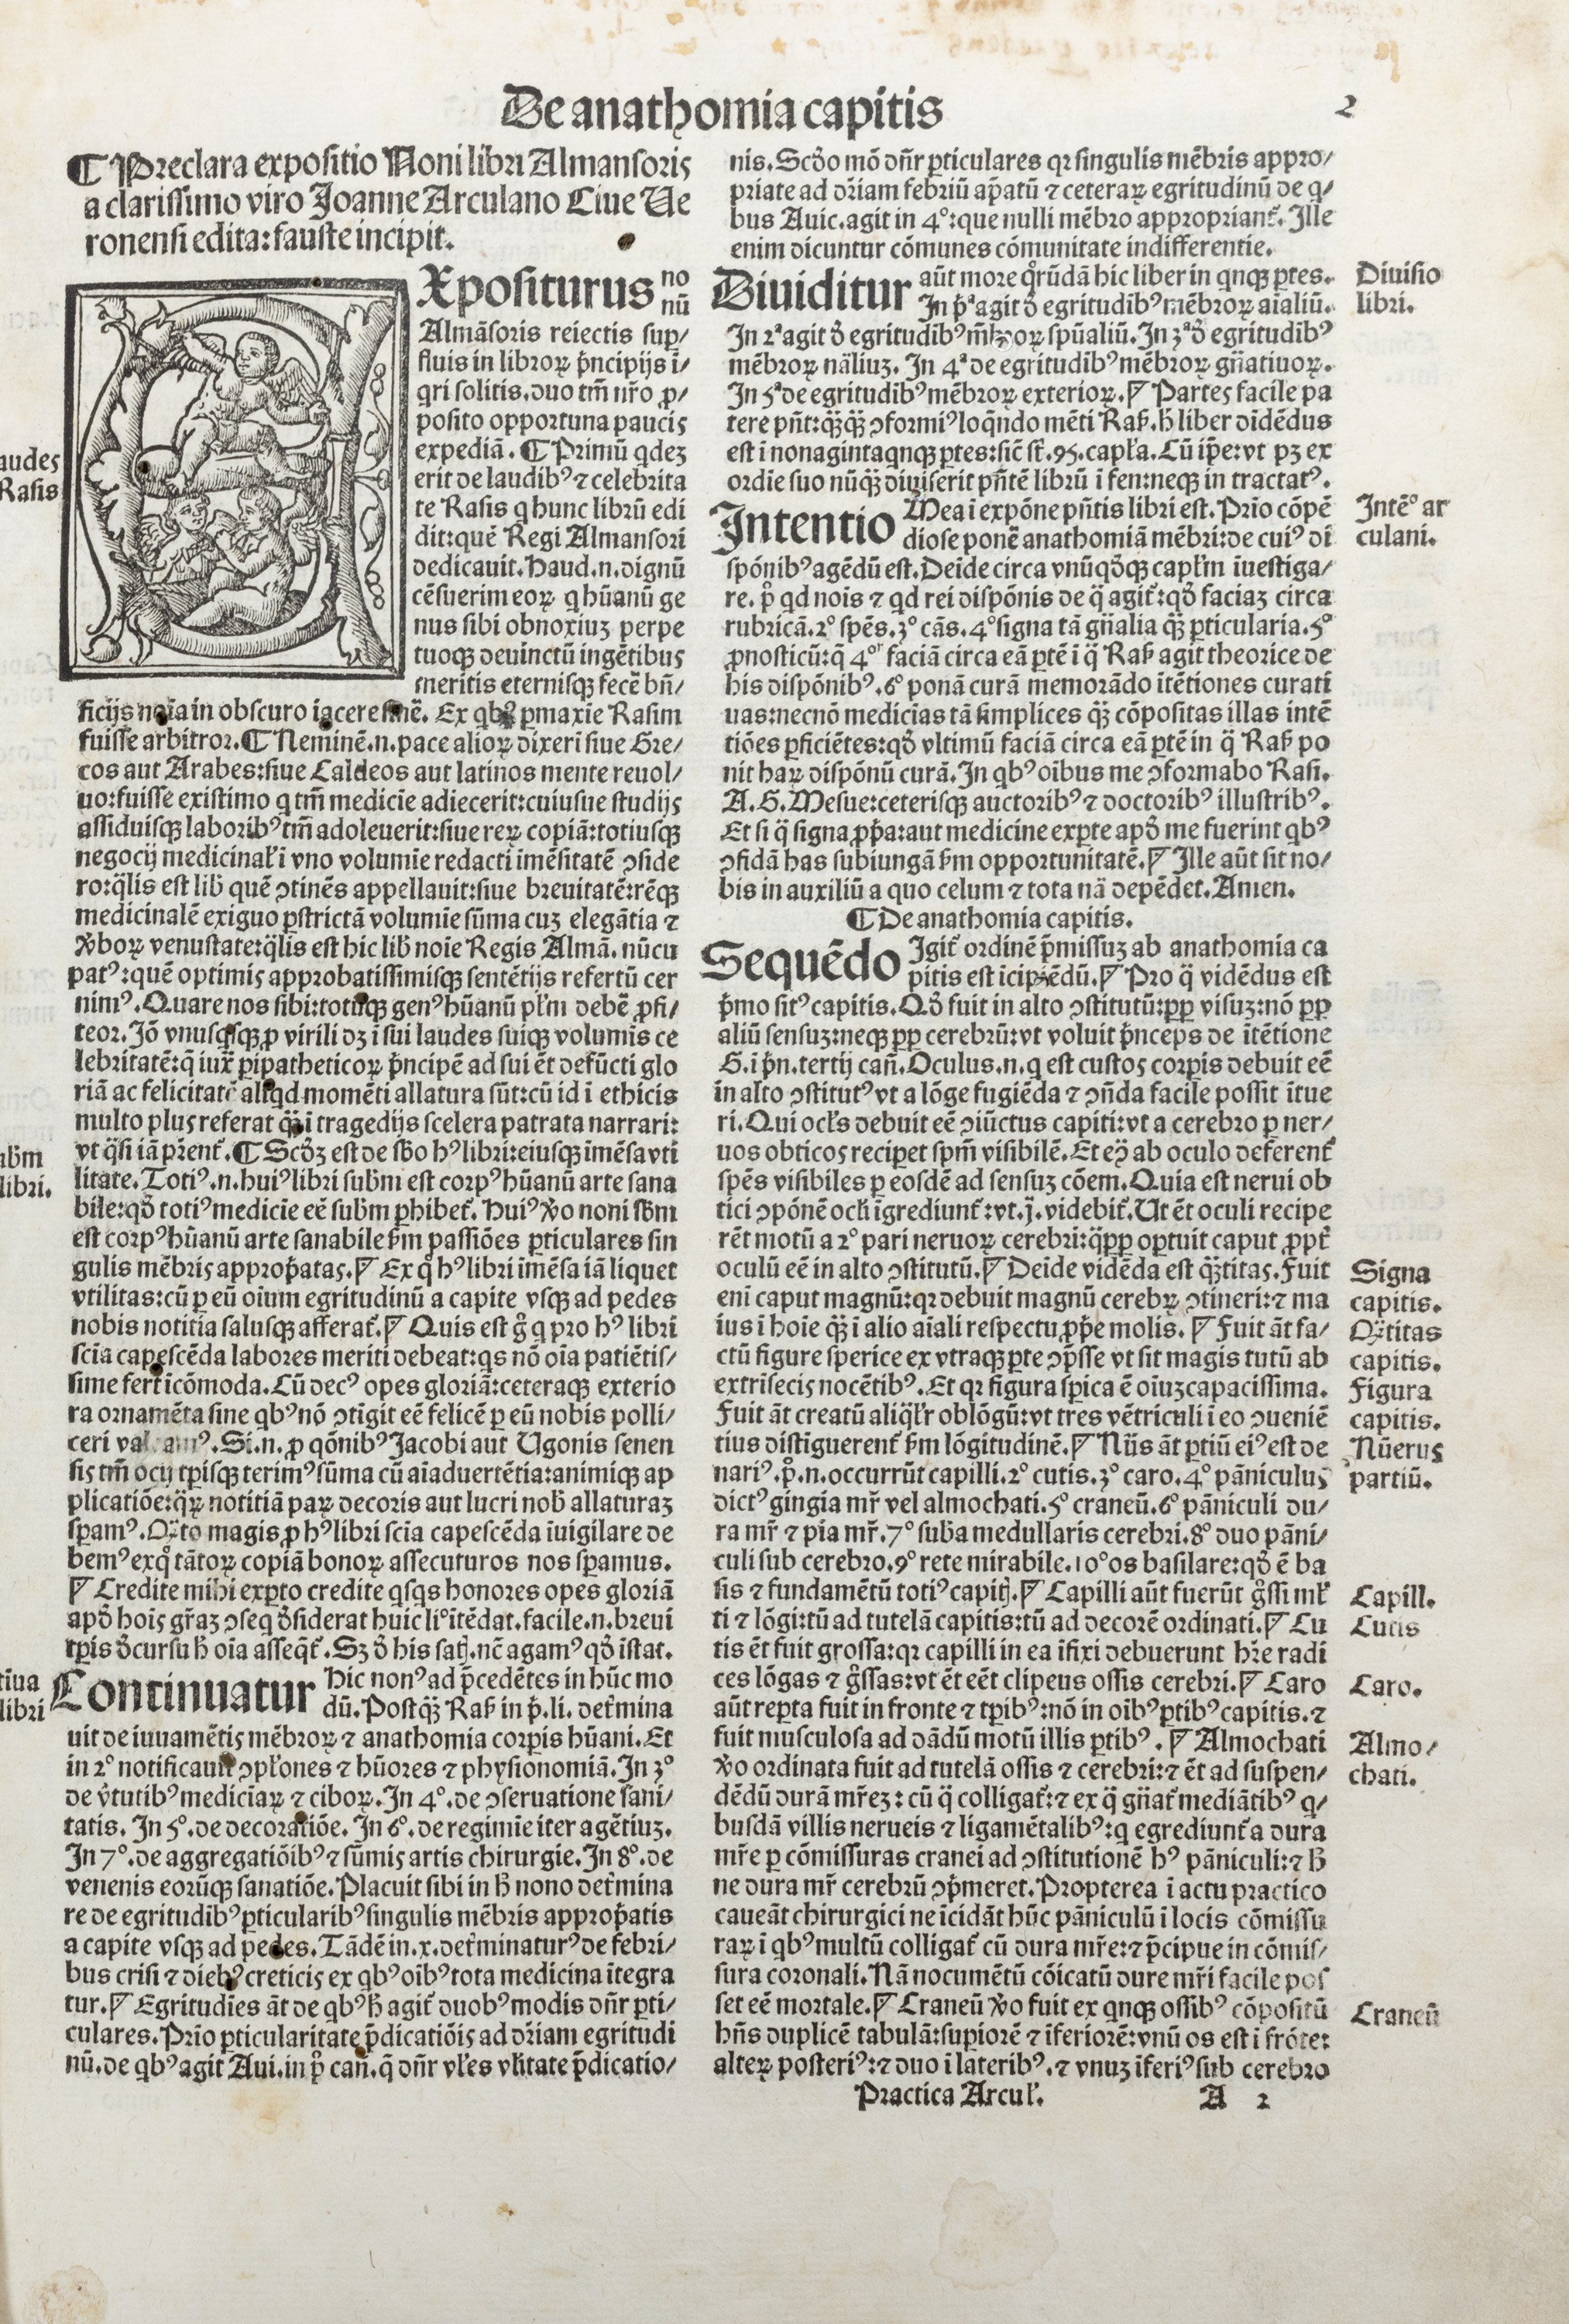 De anathomia capitis
2
¶ Preclara expositio Noni libri Almansoris
a clarissimo viro Joanne Arculano Ciue Ue
ronensi edita: fauste incipit.
Xpositurus no
nū
Almāsoris reiectis sup/
fluis in libroꝝ p̄ncipijs ī/
qri solitis. duo tm̄ nr̄o ꝓ/
posito opportuna paucis
expediā. ¶ Primū qdez
erit de laudibꝰ ⁊ celebrita
te Rasis q hunc librū edi
dit: quē Regi Almansori
dedicauit. Haud .n. dignū
cēsuerim eoꝝ q hūanū ge
nus sibi obnoxiuz perpe
tuoqꝫ deuinctū ingētibus
meritis eternisqꝫ fecē bn̄/
ficijs noīa in obscuro iacere sinē. Ex qbꝰ ꝑmaxīe Rasim
fuisse arbitror. ¶ Neminē .n. pace alioꝝ dixerī siue Gre/
cos aut Arabes: siue Caldeos aut latinos mente reuol/
uo: fuisse existimo q tm̄ medicīe adiecerit: cuiusue studijs
assiduisqꝫ laboribꝰ tm̄ adoleuerit: siue reꝝ copiā: totiusqꝫ
negocij medicinaꝉ ī vno volumīe redacti imēsitatē ɔside
ro: q̄lis est lib̄ quē ɔtinēs appellauit: siue breuitatē: rēqꝫ
medicinalē exiguo ꝑstrictā volumīe sūma cuz elegātia ⁊
v̄boꝝ venustate: q̄lis est hic lib̄ noīe Regis Almā. nūcu
patꝰ: quē optimis approbatissimisqꝫ sentētijs refertū cer
nimꝰ. Quare nos sibi: totūqꝫ genꝰ hūanū pꝉm debē ꝓfi/
teor. Jō vnusqsqꝫ ꝓ virili dꝫ ī sui laudes suiqꝫ volumīs ce
lebritatē: q̄ iux̄ ꝑipatheticoꝝ p̄ncipē ad sui ēt defūcti glo
riā ac felicitatē aliqd momēti allatura sūt: cū id ī ethicis
multo plus referat q̄ꝫ ī tragedijs scelera patrata narrari:
vt q̄si iā p̄rent᷑. ¶ Scd̄ꝫ est de sb̄o hꝰ libri: eiusqꝫ imēsa vti
litate. Totiꝰ .n. huiꝰ libri sub̄m est corpꝰ hūanū arte sana
bile: qd̄ totiꝰ medicīe eē sub̄m ꝑhibet᷑. Huiꝰ v̄o noni sb̄m
est corpꝰ hūanū arte sanabile ẜm passiōes ꝑticulares sin
gulis mēbris approp̄atas. ꝩ Ex q̊ hꝰ libri imēsa iā liquet
vtilitas: cū ꝑ eū oīum egritudinū a capite vsqꝫ ad pedes
nobis notitia salusqꝫ afferat᷑. ꝩ Quis est g̊ q pro hꝰ libri
scīa capescēda labores meriti debeat: qs nō oīa patiētis/
sime fert īcōmoda. Cū decꝰ opes gloriā: ceteraqꝫ exterio
ra ornamēta sine qbꝰ nō ɔtīgit eē felicē ꝑ eū nobis polli/
ceri Si .n. ꝓ qōnibꝰ Jacobi aut Ugonis senen
sis tm̄ ocij tꝑisqꝫ terimꝰ sūma cū aīaduertētia: animiqꝫ ap
plicatiōe: q̄ꝝ notitiā paꝝ decoris aut lucri nob̄ allaturaꝫ
sꝑamꝰ. Qꝫto magis ꝓ hꝰ libri scīa capescēda īuigilare de
bemꝰ exq̊ tātoꝝ copiā bonoꝝ assecuturos nos sꝑamus.
ꝩ Credite mihi exꝑto credite qsqs honores opes gloriā
apd̄ hoīs gr̄aꝫ ɔseq d̄siderat huic liꝰ ītēdat. facile .n. breui
tꝑis d̄cursu ħ oīa asseq̄t᷑. Sꝫ d̄ his satꝭ. nc̄ agamꝰ qd̄ īstat.
Continuatur Hic nonꝰ ad p̄cedētes in hūc mo
dū. Postq̄ꝫ Raẜ in p̄. li. det᷑mina
uit de iuuamētis mēbroꝝ ⁊ anathomia corꝑis hūani. Et
in 2º notificauit ɔpꝉones ⁊ hūores ⁊ physionomiā. In 3º
de v̄tutibꝰ mediciaꝝ ⁊ ciboꝝ. In 4º. de ɔseruatione sani/
tatis. In 5º. de decoratiōe. In 6º. de regimīe iter agētiuꝫ.
In 7º. de aggregatiōibꝰ ⁊ sūmis artis chirurgie. In 8º. de
venenis eorūqꝫ sanatiōe. Placuit sibi in ħ nono det᷑mina
re de egritudibꝰ ꝑticularibꝰ singulis mēbris approp̄atis
a capite vsqꝫ ad pedes. Tādē in .x. det᷑minaturꝰ de febri/
bus crisi ⁊ diebꝰ creticis ex qbꝰ oibꝰ tota medicina ītegra
tur. ꝩ Egritudīes āt de qbꝰ ħ agit᷑ duobꝰ modis dn̄r ꝑti/
culares. Prīo ꝑticularitate p̄dicatiōis ad dr̄iam egritudi
nū. de qbꝰ agit Aui. in p̊ can̄. q̄ dn̄r vꝉes vꝉitate p̄dicatio/
nis. Scd̄o mō dn̄r ꝑticulares qꝛ singulis mēbris appro/
priate ad dr̄iam febriū ap̄atū ⁊ ceteraꝝ egritudinū de q/
bus Auic. agit in 4º: que nulli mēbro appropriant᷑. Ille
enim dicuntur cōmunes cōmunitate indifferentie.
Diuiditur aūt more q̊rūdā hic liber in qnqꝫ ꝑtes.
In p̄ª agit d̄ egritudibꝰ mēbroꝝ aīaliū.
In 2ª agit d̄ egritudibꝰ mb̄roꝝ spūaliū. In 3ª d̄ egritudibꝰ
mēbroꝝ nāliuꝫ. In 4ª de egritudibꝰ mēbroꝝ gn̄atiuoꝝ.
In 5ª de egritudibꝰ mēbroꝝ exterioꝝ. ꝩ Partes facile pa
tere pn̄t: q̄ꝫq̄ꝫ ɔformiꝰ loqn̄do mēti Raẜ. ħ liber dīdēdus
est ī nonagintaqnqꝫ ꝑtes: sic̄ st̄ .95. capꝉa. Cū ip̄e: vt pꝫ ex
ordīe suo nūq̄ꝫ diuiserit pn̄tē librū ī fen: neqꝫ in tractatꝰ.
Intentio Mea ī expōne pn̄tis libri est. Prīo cōpē
diose ponē anathomiā mēbri: de cuiꝰ di
spōnibꝰ agēdū est. Deīde circa vnūqd̄qꝫ capꝉm īuestiga/
re. p̊ qd nois ⁊ qd rei dispōnis de q̄ agit᷑: qd̄ faciaꝫ circa
rubricā. 2º spēs. 3º cās. 4º signa tā gn̄alia q̄ꝫ ꝑticularia. 5º
ꝓnosticū: q̄ 4ºʳ faciā circa eā ꝑtē ī q̄ Raẜ agit theorice de
his dispōnibꝰ. 6º ponā curā memorādo ītētiones curati
uas: necnō medicīas tā simplices q̄ꝫ cōpositas illas intē
tiōes ꝑficiētes: qd̄ vltimū faciā circa eā ꝑtē in q̄ Raẜ po
nit haꝝ dispōnū curā. In qbꝰ oībus me ɔformabo Rasi.
A. G. Mesue: ceterisqꝫ auctoribꝰ ⁊ doctoribꝰ illustribꝰ.
Et si q̄ signa ꝓp̄a: aut medicine exꝑte apd̄ me fuerint qbꝰ
ɔfidā has subiungā ẜm opportunitatē. ꝩ Ille aūt sit no/
bis in auxiliū a quo celum ⁊ tota nā depēdet. Amen.
¶ De anathomia capitis.
Sequēdo Igit᷑ ordinē p̄missuꝫ ab anathomia ca
pitis est īcipiēdū. ꝩ Pro q̄ vidēdus est
p̄mo sitꝰ capitis. Qd̄ fuit in alto ɔstitutū: ꝓꝑ visuꝫ: nō ꝓꝑ
aliū sensuꝫ: neqꝫ ꝓꝑ cerebrū: vt voluit p̄nceps de ītētione
G. ī p̄n. tertij can̄. Oculus .n. q est custos corꝑis debuit eē
in alto ɔstitutꝰ vt a lōge fugiēda ⁊ ɔn̄da facile possit ītue
ri. Qui ocꝉs debuit eē ɔiūctus capiti: vt a cerebro ꝑ ner/
uos obticos reciperet spm̄ visibilē. Et eꝫ ab oculo deferent᷑
spēs visibiles ꝑ eosdē ad sensuꝫ cōem. Quia est nerui ob
tici ɔpōnē ocꝉi īgrediunt᷑: vt .j. videbit᷑. Ut ēt oculi recipe
rēt motū a 2º pari neruoꝝ cerebri: q̄ꝓꝑ oꝑtuit caput ꝓpt᷑
oculū eē in alto ɔstitutū. ꝩ Deīde vidēda est q̄ꝫtitas. Fuit
enī caput magnū: qꝛ debuit magnū cerebꝝ ɔtineri: ⁊ ma
ius ī hoīe q̄ꝫ ī alio aīali respectu ꝓp̄e molis. ꝩ Fuit āt fa/
ctū figure sperice ex vtraqꝫ ꝑte ɔp̄sse vt sit magis tutū ab
extrīsecis nocētibꝰ. Et qꝛ figura sꝑica ē oīuꝫ capacissima.
Fuit āt creatū aliq̄ꝉr oblōgū: vt tres vētriculi ī eo ɔueniē
tius distīguerent᷑ ẜm lōgitudinē. ꝩ Nūs āt ꝑtiū eiꝰ est de
nariꝰ. p̊ .n. occurrūt capilli. 2º cutis. 3º caro. 4º pāniculus
dictꝰ gingia mr̄ vel almochati. 5º craneū. 6º pāniculi du/
ra mr̄ ⁊ pia mr̄. 7º sub̄a medullaris cerebri. 8º duo pāni/
culi sub cerebro. 9º rete mirabile. 10º os basilare: qd̄ ē ba
sis ⁊ fundamētū totiꝰ capitꝭ. ꝩ Capilli aūt fuerūt g̊ssi mꝉ
ti ⁊ lōgi: tū ad tutelā capitis: tū ad decorē ordinati. ꝩ Cu
tis ēt fuit grossa: qꝛ capilli in ea īfixi debuerunt hr̄e radi
ces lōgas ⁊ g̊ssas: vt ēt eēt clipeus ossis cerebri. ꝩ Caro
aūt reꝑta fuit in fronte ⁊ tꝑibꝰ: nō in oībꝰ ꝑtibꝰ capitis. ⁊
fuit musculosa ad dādū motū illis ꝑtibꝰ. ꝩ Almochati
v̄o ordinata fuit ad tutelā ossis ⁊ cerebri: ⁊ ēt ad suspen/
dēdū durā mr̄eꝫ: cū q̄ colligat᷑: ⁊ ex q̄ gn̄at᷑ mediātibꝰ q/
busdā villis nerueis ⁊ ligamētalibꝰ: q egrediunt᷑ a dura
mr̄e ꝑ cōmissuras cranei ad ɔstitutionē hꝰ pāniculi: ⁊ ħ
ne dura mr̄ cerebrū ɔp̄meret. Propterea ī actu practico
caueāt chirurgici ne īcidāt hūc pāniculū ī locis cōmissu
raꝝ ī qbꝰ multū colligat᷑ cū dura mr̄e: ⁊ p̄cipue in cōmis/
sura coronali. Nā nocumētū cōicatū dure mr̄i facile pos
set eē mortale. ꝩ Craneū v̄o fuit ex qnqꝫ ossibꝰ cōpositū
hn̄s duplicē tabulā: supiorē ⁊ īferiorē: vnū os est ī frōte:
alteꝝ posteriꝰ: ⁊ duo ī lateribꝰ. ⁊ vnuꝫ īferiꝰ sub cerebro
Practica Arcuꝉ.
A 2
audes
Rasis
ub̄m
libri.
tīua
libri
Diuisio
libri.
Intēº ar
culani.
Signa
capitis.
Qꝫtitas
capitis.
Figura
capitis.
Nūerus
partiū.
Capill.
Cutis
Caro.
Almo/
chati.
Craneū